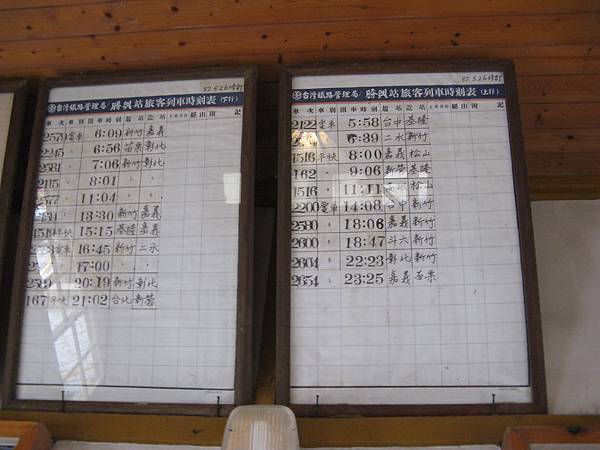 87.5.26修訂
台灣鐵路管理局/勝興站旅客列車時刻表(下行)
車次 車別 開車時刻 起站 訖站 經由 附記
2579 電車 6:09 新竹 嘉義
2245 〃 6:56 苗栗 彰化
2581 〃 7:06 新竹 彰化
2115 〃 8:01 〃 〃
〃 11:04 〃 〃
13:30 新竹 嘉義
1519 平快 15:15 基隆 嘉義
電車 16:45 新竹 二水
17:00 〃 〃
20:19 新竹 彰化
167 平快 21:02 台北 新營
87.5.26修訂
台灣鐵路管理局/勝興站旅客列車時刻表(上行)
車次 車別 開車時刻 起站 訖站 經由 附記
2122 電車 5:58 台中 基隆
6:39 二水 新竹
1516 平快 8:00 嘉義 松山
162 〃 9:06 新營 基隆
1516 〃 11:11 松山
2200 電車 14:08 台中 新竹
2580 〃 18:06 嘉義 新竹
2600 〃 18:47 斗六 新竹
2604 〃 22:23 彰化 新竹
2654 〃 23:25 嘉義 苗栗